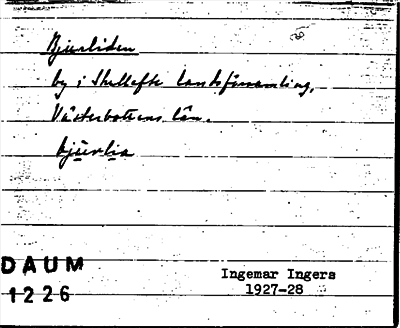 Bjurliden
by i Skellefte landsförsamling,
Västerbottens län.
bju̱rlia
DAUM
1226
Ingemar Ingers
1927-28